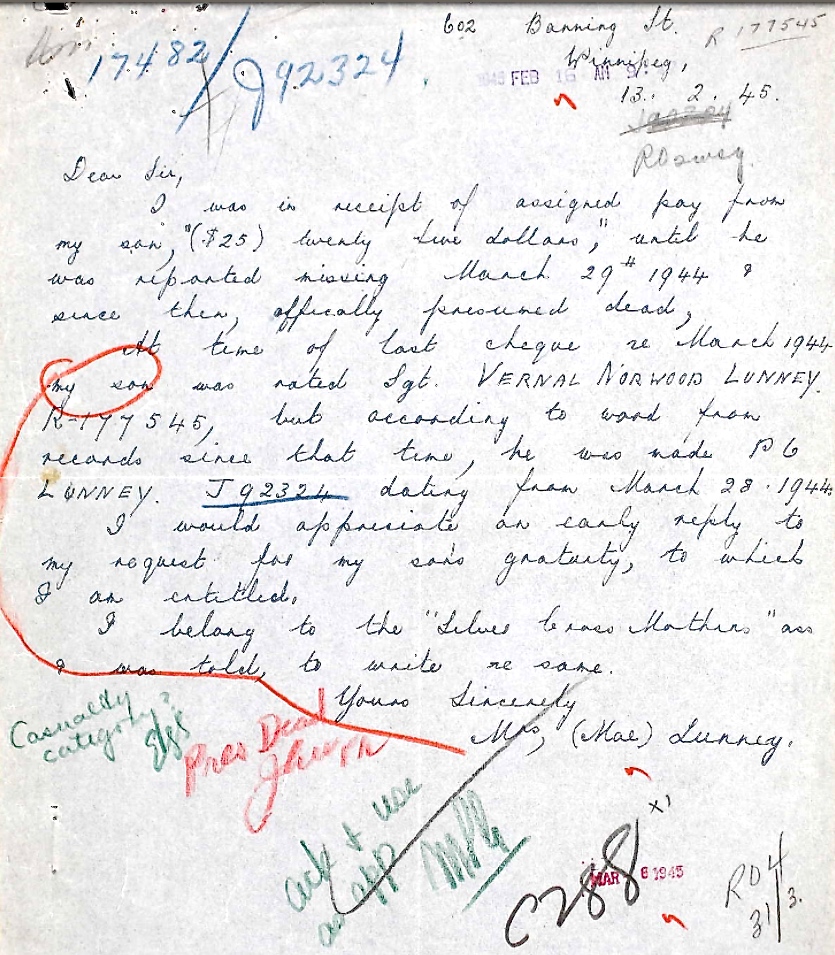 602 Banning St.
R 177545
17482/J92324.
Winnipeg,
1945 FEB 16 AM 9
13. 2. 45.
Dear Sir,
I was in receipt of assigned pay from
my son, "($25) twenty five dollars," until he
was reported missing March 29th 1944 &
since then, offically presumed dead,
At time of last cheque re March 1944
my son was rated Sgt. VERNAL NORWOOD LUNNEY.
R-177545, but according to word from
records since that time, he was made P6
LUNNEY. J92324 dating from March 28. 1944
I would appreciate an early reply to
my request for my son's gratuity, to which
I am entitled.
I belong to the "Silver Cross Mothers" ass
& was told, to write re same.
Yours Sincerely
Mrs, (Mae) Lunney.
Casualty
category?
Pres Dead
ack + use
app
x1
C288
MAR 6 1945
RO4
31/3.